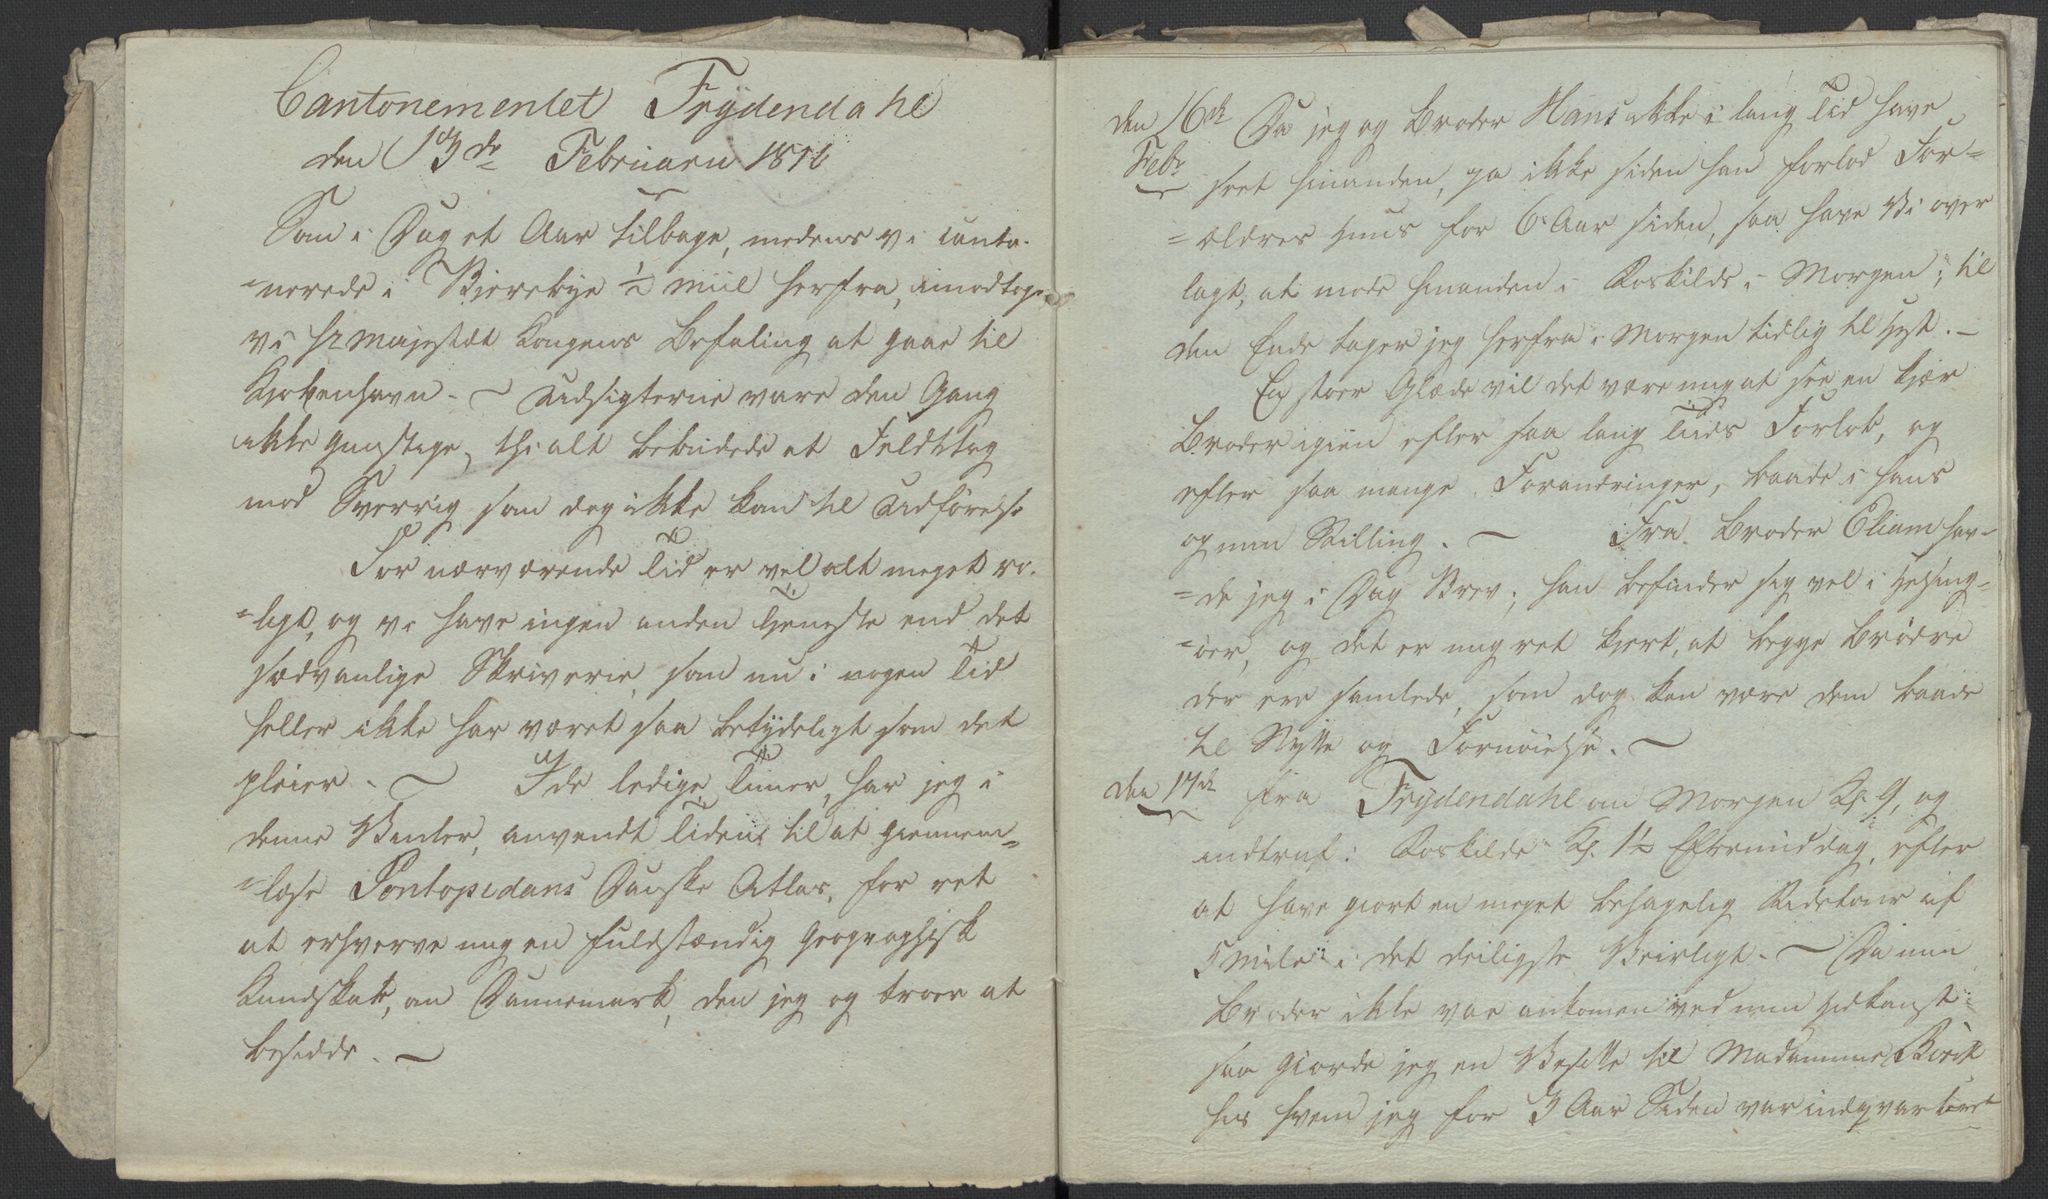 Cantonementet Frydendahl
den 13de Februarii 1811
Som i Dag et Aar tilbage, medens vi canto-
=nerede i Bjerebye ½ Miil herfra, imodtoge
vi Hs Majestæt Kongens Befaling at gaae til
Kjøbenhavn. — Udsigterne vare den Gang
ikke gunstige, thi alt bebudede et Feldttog
mod Sverrig som dog ikke kom til Udførelse
For nærværende Tid er vel alt meget ro-
=ligt, og vi have ingen anden Tjeneste end det
sædvanlige Skriverie, som nu i nogen Tid
heller ikke har været saa betydeligt som det
pleier. — I de ledige Timer, har jeg i
denne Vinter, anvendt Tiden til at giennem=
=læse Pontopidans Danske Atlas, for ret
at erhverve mig en fuldstændig geographisk
Kundskab, om Dannemark, den jeg og troer at
besidde. —
den 16de Da jeg og Broder Hans ikke i lang Tid have
Febr seet hinanden, ja ikke siden han forlod For=
=ældres Huus for 6 Aar siden, saa have Vi over
lagt, at møde hinanden i Roskilde i Morgen; til
den Ende tager jeg herfra i Morgen tidlig til Hest. —
En stoer Glæde vil det være mig at see en kjær
Broder igien efter saa lang Tiids Forløb, og
efter saa mange Forandringer, baade i hans
og min Stilling. — Fra Broder Eliam hav=
=de jeg i Dag Brev; han befinder sig vel i Helsing=
=øer, og det er mig ret kjert, at begge Brødre
der ere samlede, som dog kan være dem baade
til Nytte og Fornøielse. —
den 17de Fra Frydendahl om Morgen Kl. 9, og
indtraf i Roskilde Kl. 1½ Eftermiddag, efter
at have giort en meget behagelig Ridetour af
5 Mile i det deiligste Veirligt. — Da min
Broder ikke var ankomen ved min Hidkomst
saa giorde jeg en Visitte til Madamme
hos hvem jeg for 3 Aar Siden var indqvarteret